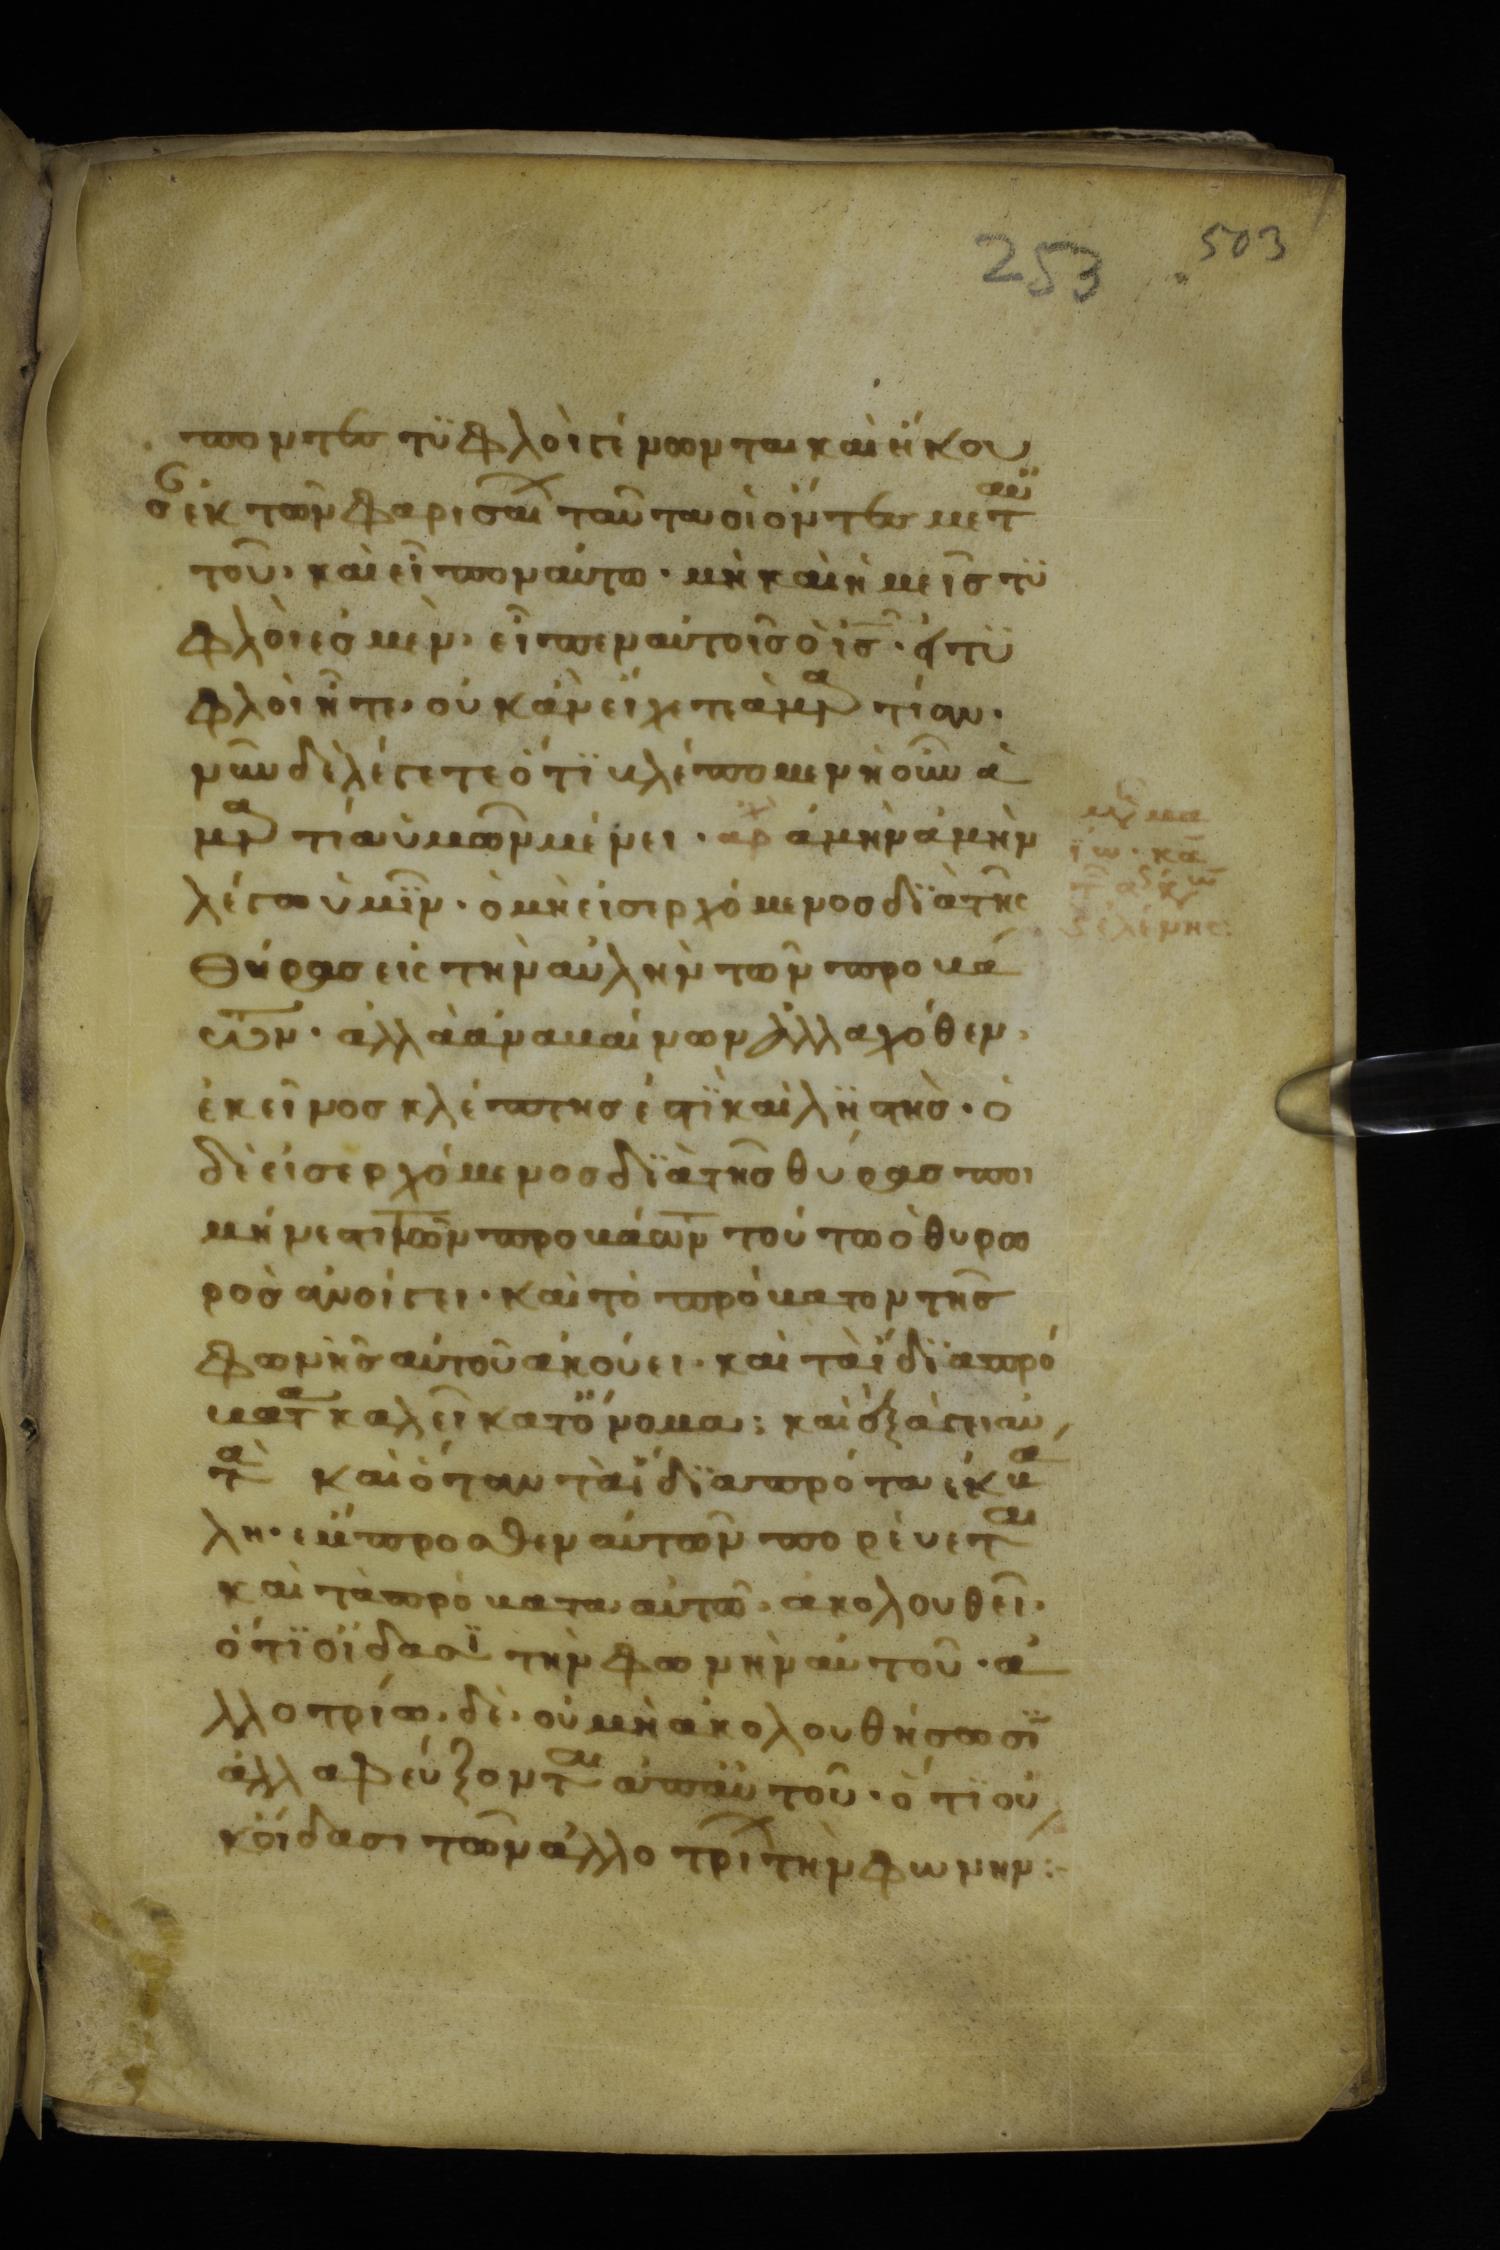 253 503
ποντες τϋφλὸι γένωνται καὶ ἤκου
σ ἐκ τῶν φαρισαι ταῦτα ὁι ὄντες μετ αυ
τοῦ· καὶ εἶπον αὐτω· μὴ καὶ ἡμεῖς τϋ
φλὸι ἐσμὲν· εἶπεν αὐτοῖς ὁ ις· εἰ τϋ
φλὸι ἦτε· οὐκ ἂν εἴχετε ἁμρ τίαν·
νῦν δὲ λέγετε ὅτϊ βλέπομεν ἡ οῦν ἁ
μρ τία ὑμῶν μένει· αρχ ἀμὴν ἀμὴν
λέγω ὑμῖν· ὁ μὴ εἰσερχόμενος δϊὰ τῆς
θήρας εἰς τὴν αὐλὴν τῶν προβά
των· ἀλλὰ ἀναβαίνων ἀλλαχόθεν·
ἐκεῖνος κλέπτης ἐστϊ καὶ λϊηστὴς· ὁ
δὲ εἰσερχόμενος δϊὰ τῆς θύρας ποι
μήν ἐστι τῶν προβάτων τούτω ὁ θυρω
ρὸς ἀνοίγει· καὶ τὸ πρόβατον τῆς
φωνῆς αὐτοῦ ἀκούει· καὶ τὰ ἴδϊα πρό
βατα καλεῖ κατ ὄνομα· καὶ ἐξάγει αὐ
τὰ καὶ ὅταν τὰ ἴδϊα πρότα ἐκβα
λη· ἔμπροσθεν αὐτῶν πορέυεται
καὶ τὰ πρόβατα αὐτῶ· ἀκολουθεῖ·
ὅτϊ οἴδασϊ τὴν φωνὴν αὐτοῦ· ἀ
λλοτρίω· δὲ· οὐ μὴ ἀκολουθήσωσϊ
ἀλλα φεύξονται ἀπ αὐτοῦ· ὅτϊ οὐ
κ οἴδασι τῶν ἀλλοτρι τὴν φωνην:
ιω· κα